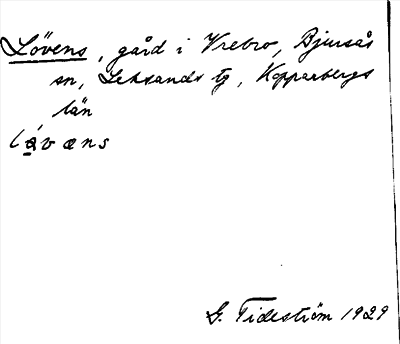 Lövens, gård i Vrebro, Bjursås
sn, Leksands tg, Kopparbergs
län
lá̱væns
G. Tideström 1929